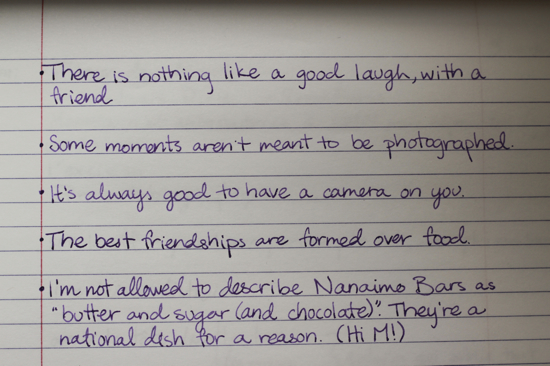 · There is nothing like a good laugh, with a
friend
· Some moments aren't meant to be photographed.
· It's always good to have a camera on you.
· The best friendships are formed over food.
· I'm not allowed to describe Nanaimo Bars as
"butter and sugar (and chocolate)". They're a
national dish for a reason. (Hi M!)